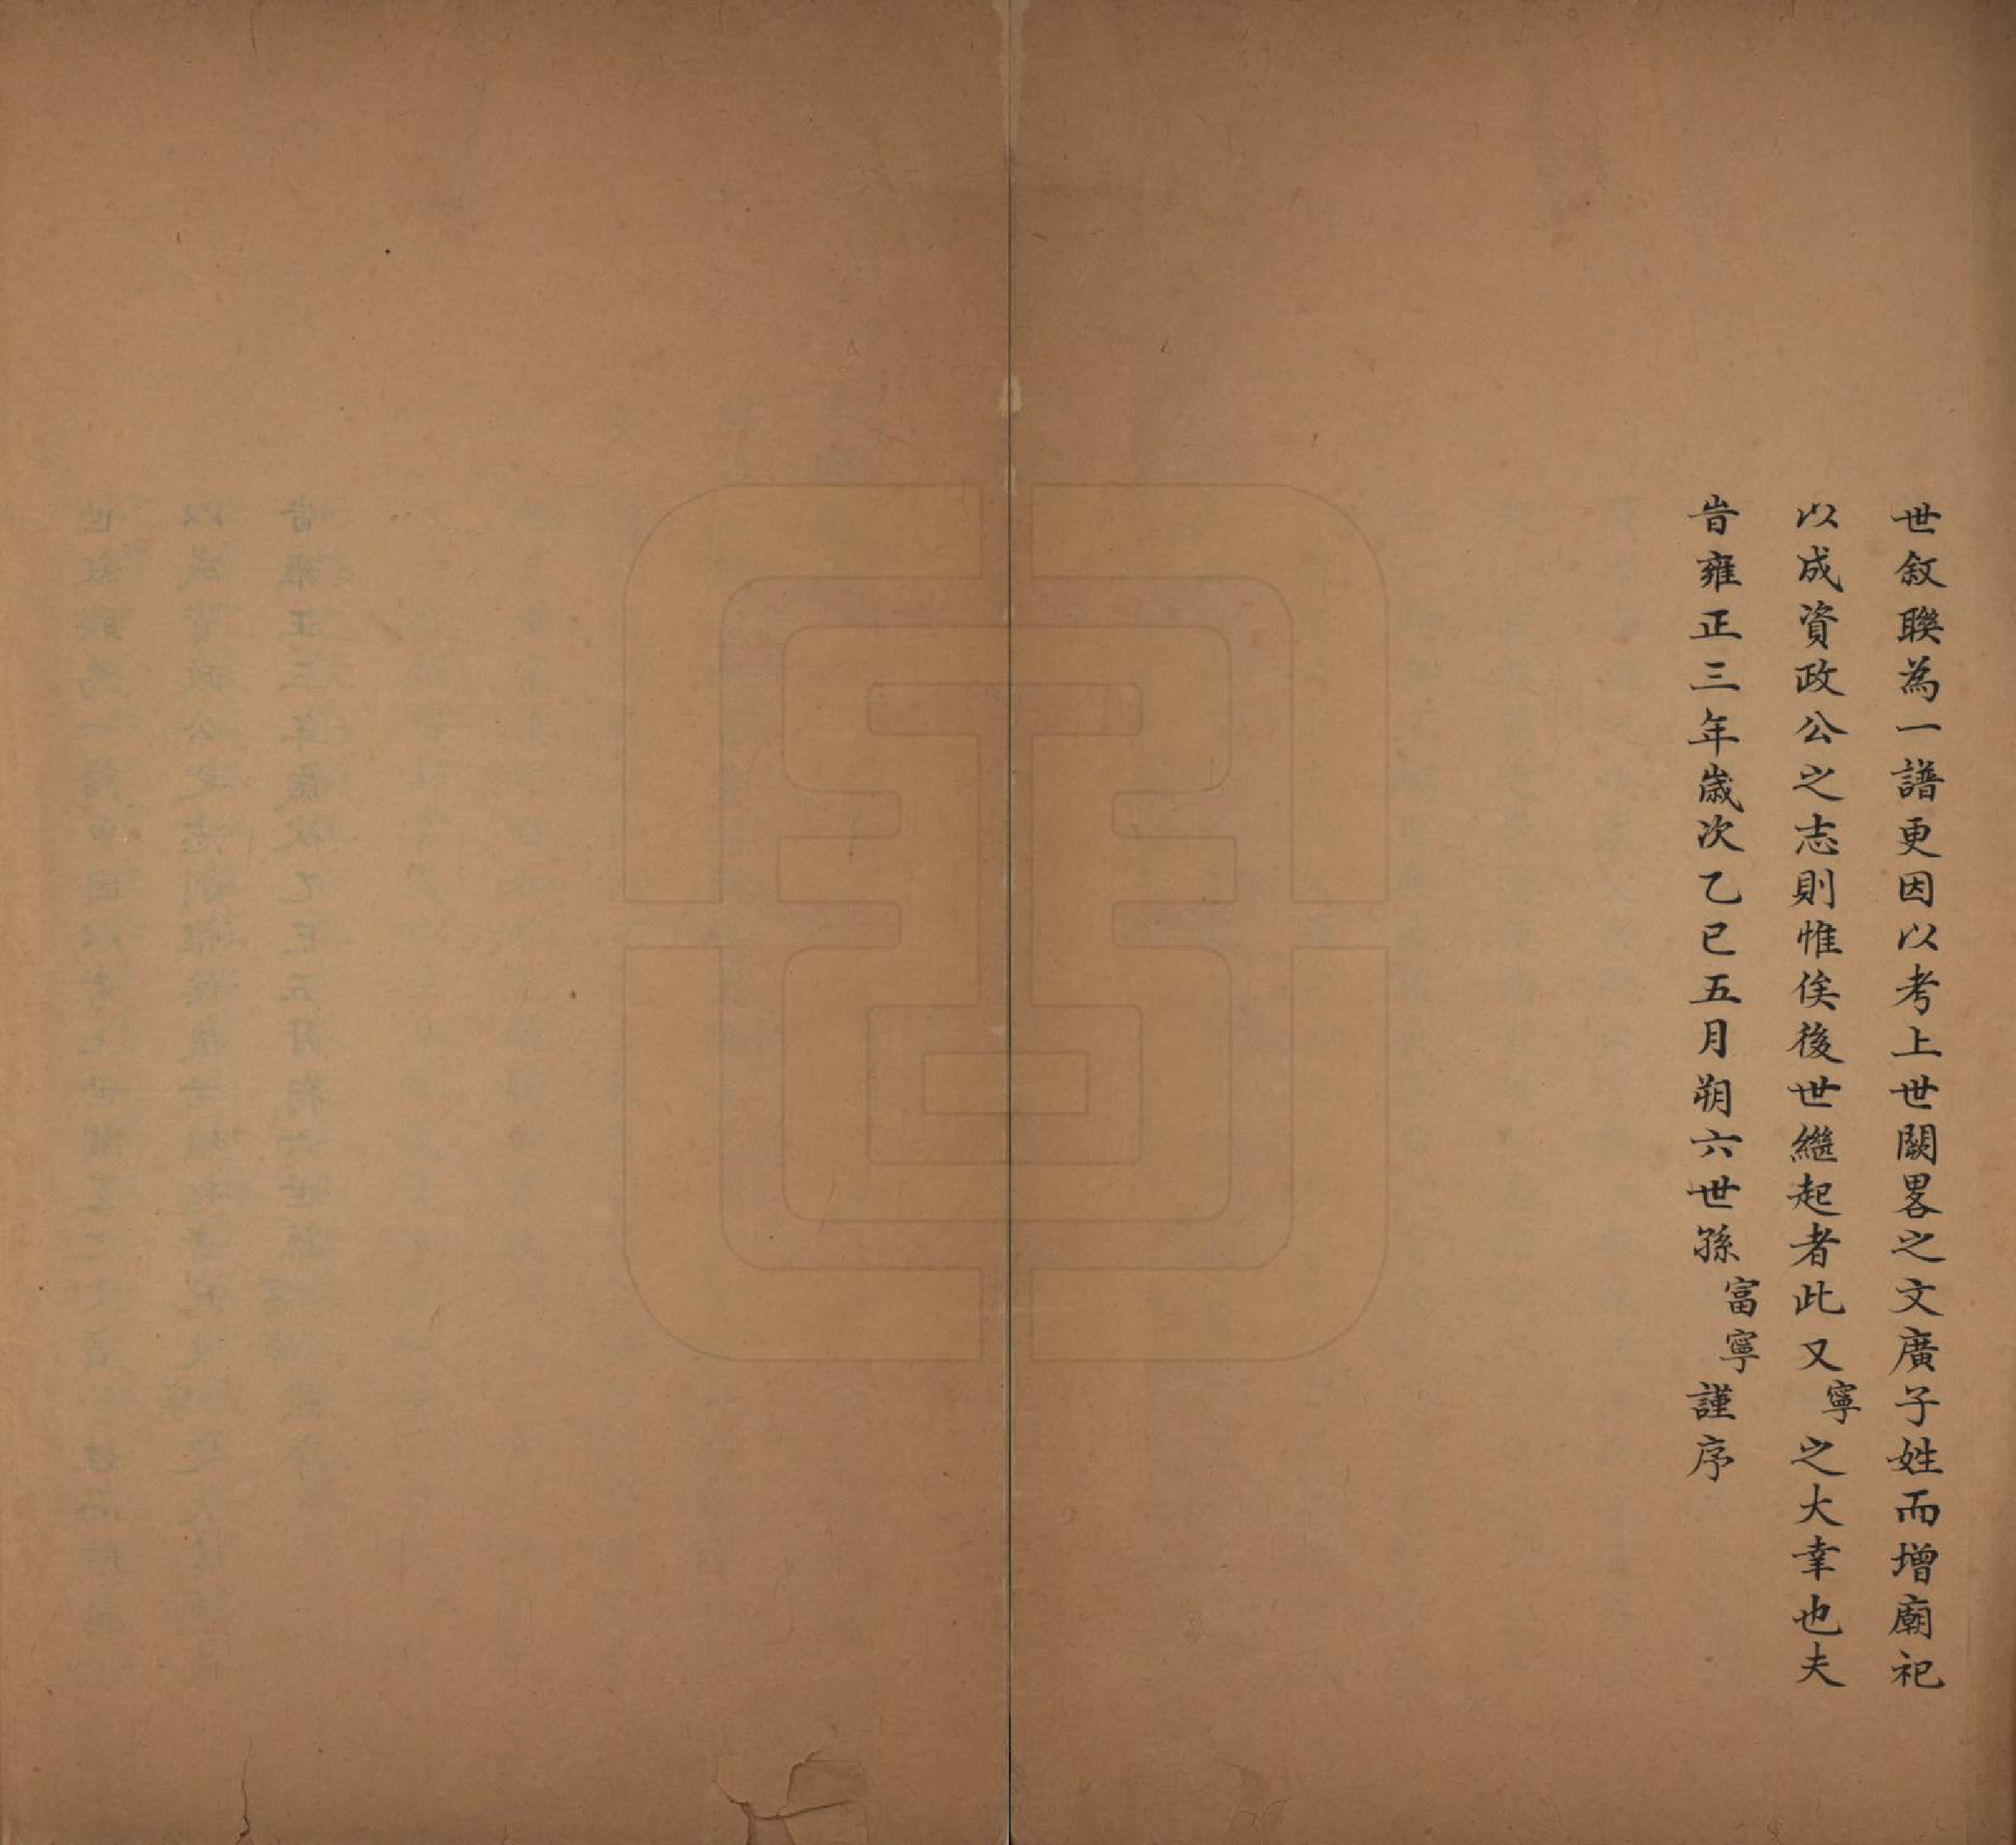 世敘聯為一譜更因以考上世闕畧之文廣子姓而增廟祀
以成資政公之志則惟俟後世繼起者此又寧之大幸也夫
旹雍正三年歲次乙巳五月朔六世孫富寧謹序